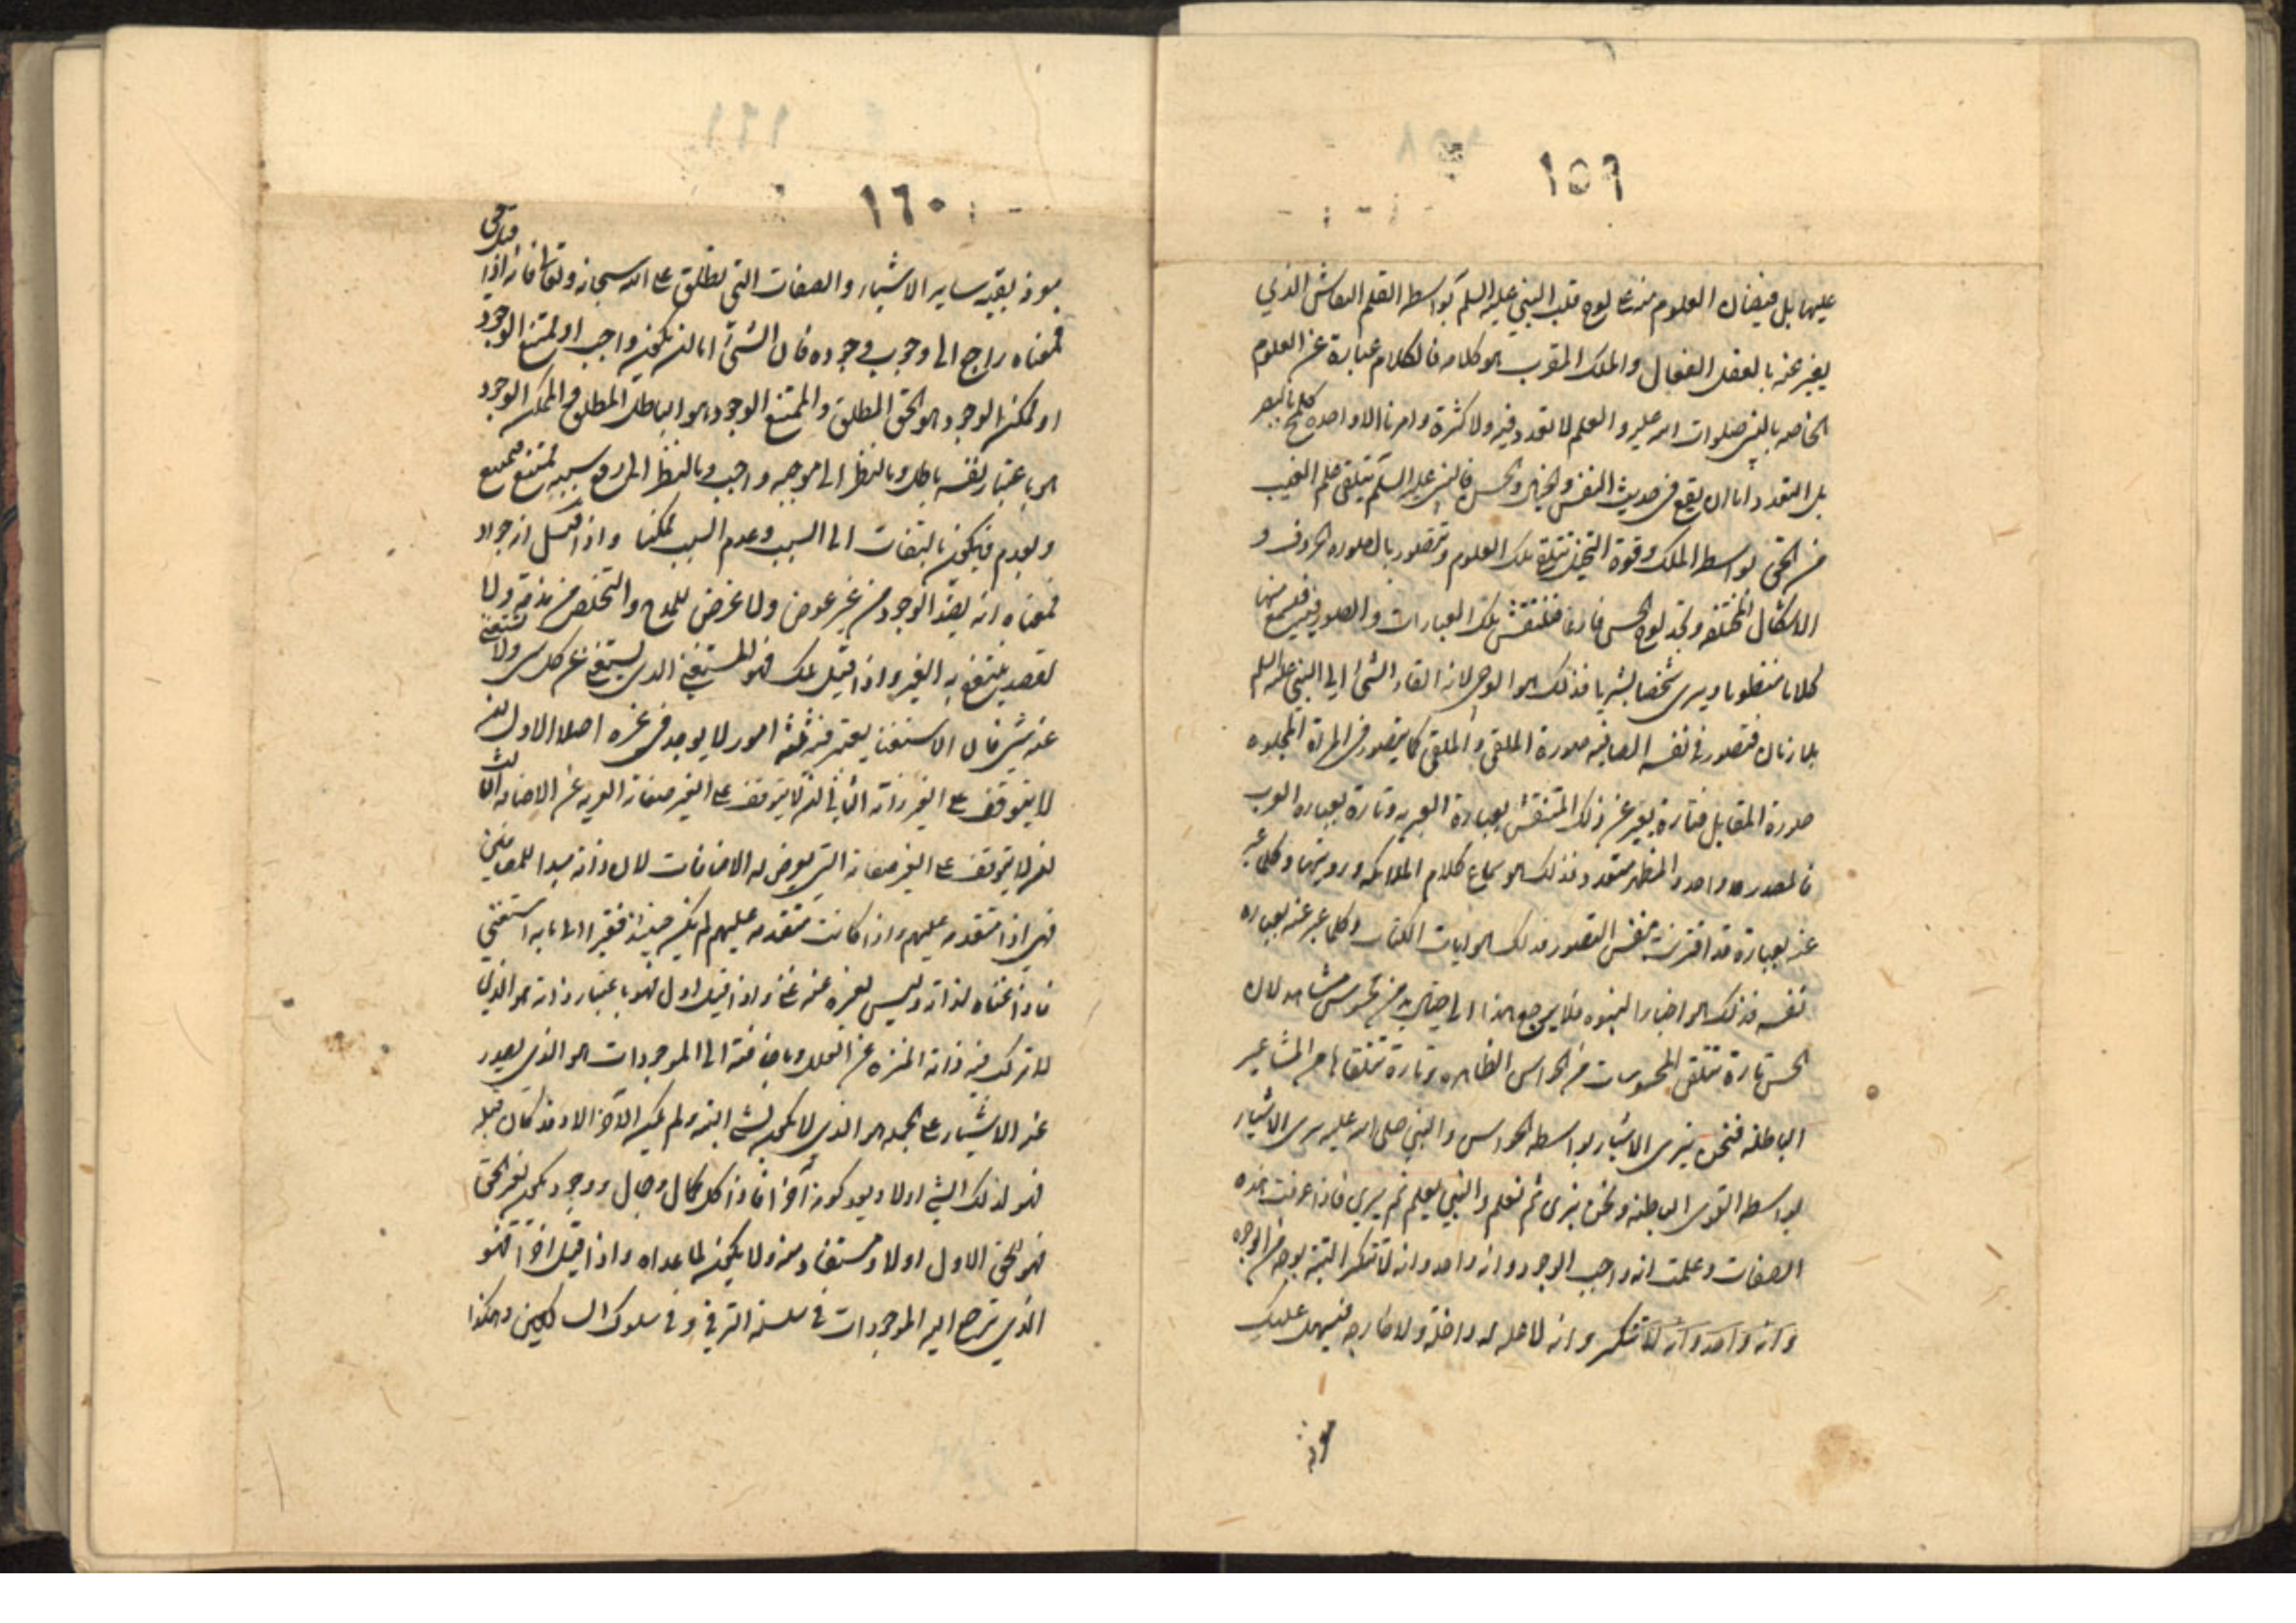 ١٥٩
عليها بل فيضان العلوم منه على لوح قلب النبي عليه السلم بواسطه القلم النقاش الذي
يعبر عنه بالعقل الفعال والملك المقرب هو كلامه فالكلام عبارة عن العلوم
الخاصه بالنبي صلوات الله عليه والعلم لا تعدد فيه ولا كثرة وما امرنا الا واحدة كلمح بالبصر
بل التعدد اما ان يقع في حديث النفس والخيال والحس فالنبي عليه السلم يتلقى علم الغيب
من الحق بواسطه الملك وقوة التخيل تتلقى تلك العلوم وتتصور بالصوره الحروف و
الاشكال المختلفه وتجد لوح الحس فارغا فتنتقش تلك العبارات والصور فيه فيسمع منها
كلاما منظوما ويرى شخصا بشريا فذلك هو الوحي لانه القاء الشئ الى النبي عليه السلم
بلا زمان فتصور في نفسه الصافيه صورة الملقى والملقي كما يتصور في المرآة المجلوه
صورة المقابل فتارة يعبر عن ذلك المنتقش بعبارة العبريه وتارة بعباره العرب
فالمصدر واحد والمظهر متعدد فذلك هو سماع كلام الملايكه ورويتها وكلما عبر
عنه بعبارة قد اقترنت بنفس التصور فذلك هو ايات الكتاب وكلما عبر عنه بعباره
نفسه فذلك هو اخبار النبوه فلا يرجع هذا الى خيال بد من محسوس مشاهد لان
الحس تارة تتلقى المحسوسات من الحواس الظاهره وتارة تتلقاها من المشاعر
الباطنه فنحن نرى الاشياء بواسطه الحواس والنبي صلى الله عليه يرى الاشياء
بواسطه القوى الباطنه ونحن نرى ثم نعلم والنبي يعلم ثم يرى فاذا عرفت هذه
الصفات وعلمت انه واجب الوجود وانه واحد وانه لا تتكثر البتة بوجه من الوجوه
وانه واحد وانه لا تتكثر وانه لا علة له داخلة ولا خارجه فيسهل عليك
١٦٠
معرفة بقيه ساير الاشياء والصفات التي تطلق على الله سبحانه وتعالى فانه اذا قيل حق
فمعناه راجع الى وجوب وجوده فان الشئ اما ان يكون واجب او ممتنع الوجود
او ممكن الوجود هو الحق المطلق والممتنع الوجود هو الباطل المطلق والممكن الوجود
هو باعتبار نفسه باطل وبالنظر الى موجبه واجب وبالنظر الى رفع سببه ممتنع
ويعدم فيكون بالتفات الى السبب وعدم السبب ممكنا واذا قيل انه جواد
فمعناه انه يفيد الوجود من غير عوض ولا غرض للمدح والتخلص من مذمة ولا
لقصد ينتفع به الغير واذا قيل ملك فهو المستغني الذي يستغني عن كل شى ولا يستغنى
عنه شئ فان الاستغنا يعتبر فيه ثلثة امور لا يوجد في غيره اصلا الاول انه
لا يتوقف على الغير ذاته الثاني انه لا يتوقف على الغير صفاته العريه عن الاضافه الثالث
انه لا يتوقف على الغير صفاته التي يعرض له الاضافات لان ذاته مبدا
فهي اذا متقدمه عليهم واذا كانت متقدمه عليهم لم يكن حينئذ فقيرا الى ما به استغنى
فاذا غناه لذاته وليس لغيره عنه غنى واذا قيل اول فهو باعتبار ذاته هو الذي
لا تركب فيه ذاته المنزه عن العلل وباضافته الى الموجودات هو الذي يصدر
عنه الاشياء على الجملة هو الذي لا يكون لشئ البته ولم يكن الآخر الا وقد كان قبله
فهو لذلك الشئ اولا وبعد كونه آخرا فاذا كل كمال وجمال ووجود يكون لغير الحق
فهو للحق الاول اولا ومستفاد منه ولا يكون لما عداه واذا قيل اخرا فهو
الذي ترجع اليه الموجودات في سلسلة الترقي وفي سلوك السالكين وهكذا